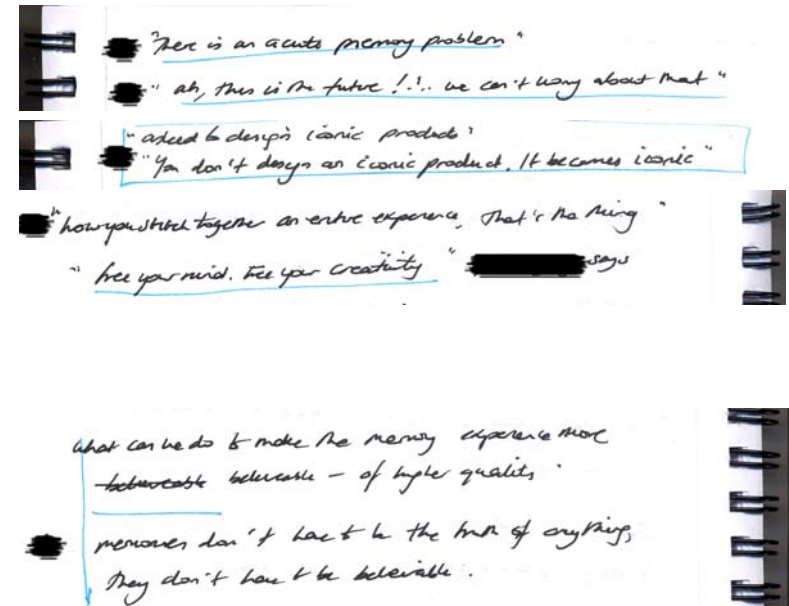 "There is an acute memory problem"
"ah, this is the future !.!.. we can't worry about that"
"asked to design iconic products"
"You don't design an iconic product. It becomes iconic"
"how you stitch together an entire experience, that's the thing"
"free your mind. Free your creativity" says
what can we do to make the memory experience more
believable believable – of higher quality.
memories don't have to be the truth of anything,
they don't have to be believable.